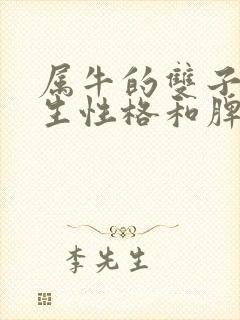 属牛的雙子
生性格和脾
李先生